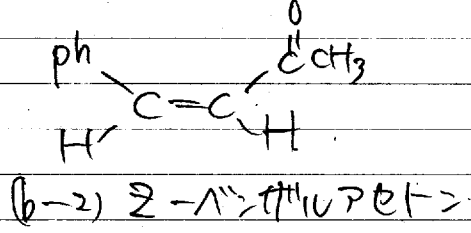 O
ph CCH3
C=C
H H
(b-2) Z-ベンザルアセトン